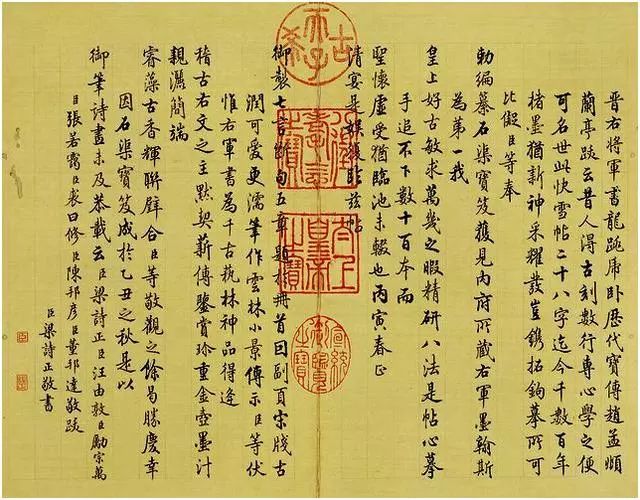 晉右將軍書龍跳虎卧歷代寶傳趙孟頫
蘭亭跋云昔人得古刻數行專心學之便
可名世此快雪帖二十八字迄今千數百年
楮墨猶新神采耀發豈鐫拓鉤摹所可
比儗臣等奉
勅編纂石渠寶笈獲見内府所藏右軍墨翰斯
為第一我
皇上好古敏求萬幾之暇精研八法是帖心摹
手追不下數十百本而
聖懷虛受猶臨池未輟也丙寅春正
清宴是娛復臨兹帖
御製七言斷句五章題於冊首因副頁宋牋古
潤可愛更濡筆作雲林小景傳示臣等伏
惟右軍書為千古藝林神品得逢
稽古右文之主默契薪傳鑒賞珍重金壺墨汁
親灑簡端
睿藻古香輝聯璧合臣等敬觀之餘曷勝慶幸
因石渠寶笈成於乙丑之秋是以
御筆詩畫未及恭載云臣梁詩正臣汪由敦臣勵宗萬
臣張若靄臣裘曰修臣陳邦彥臣董邦達敬跋
臣梁詩正敬書
古希天子
八徵耄念之寶
太上皇帝之寶
宣統御覽之寶